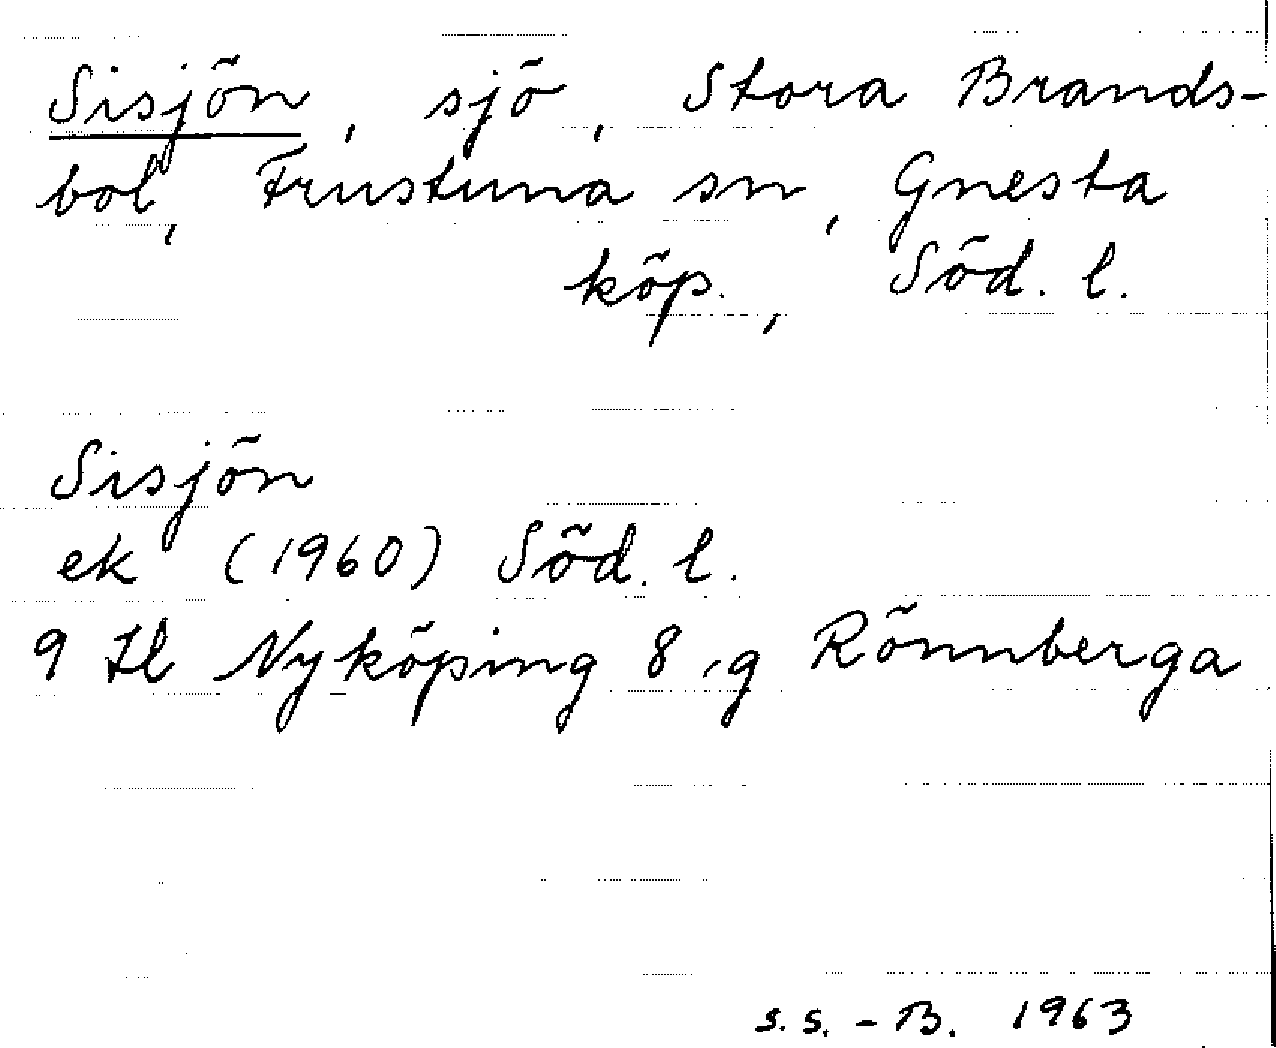 Sisjön, sjö, Stora Brands-
bol, Frustuna sn, Gnesta
köp., Söd. l.
Sisjön
ek (1960) Söd. l.
9 H Nyköping 8 g Rönnberga
S. S. - B. 1963